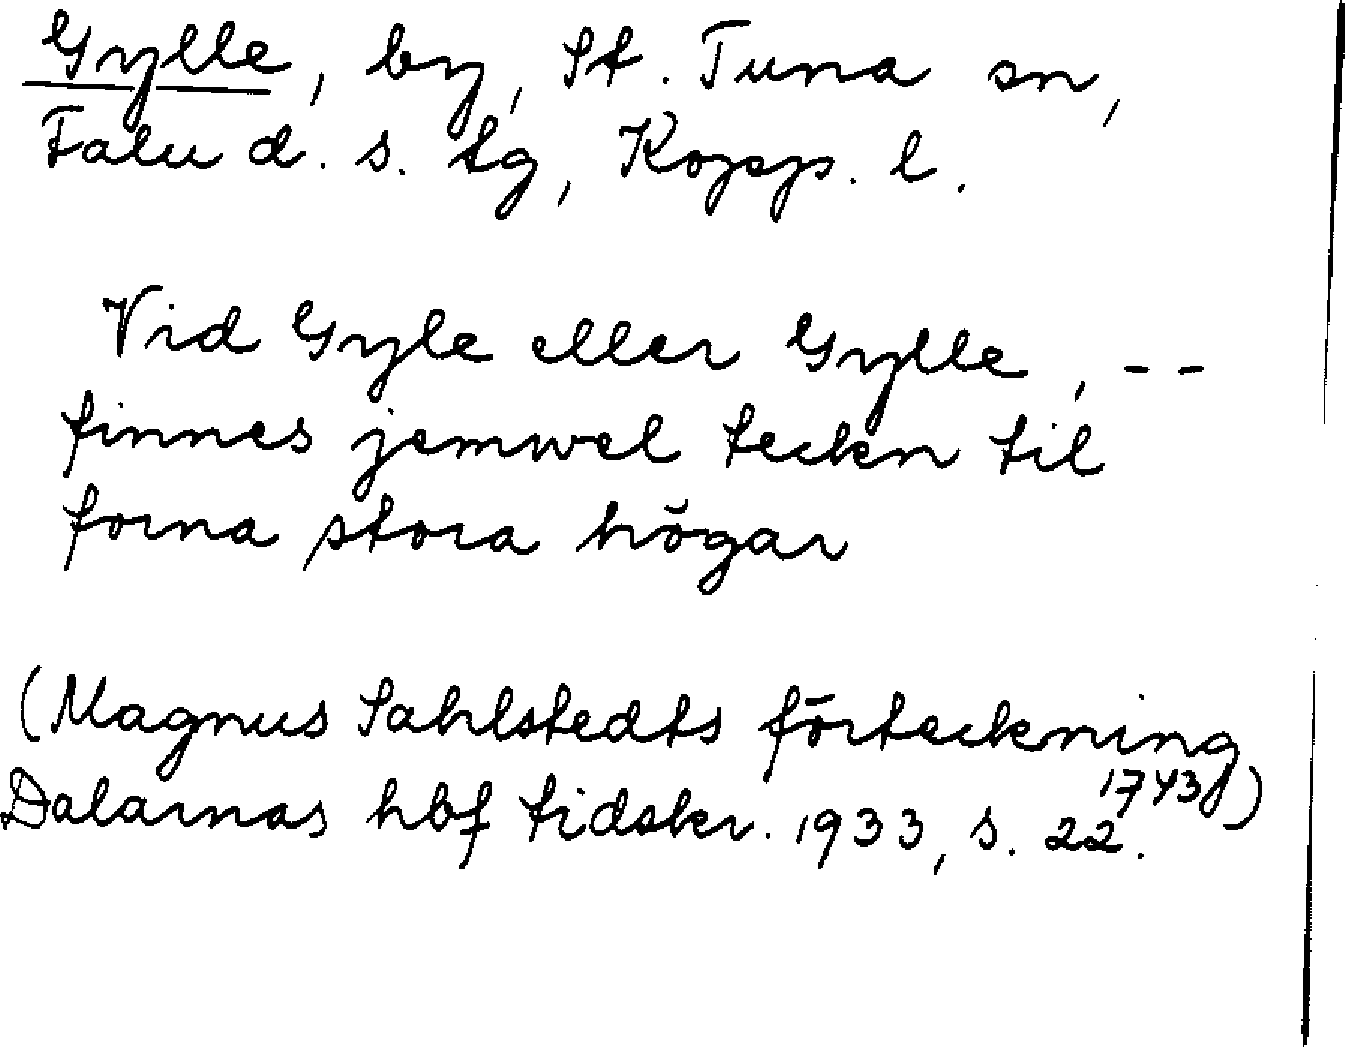 Gylle, by, St. Tuna sn,
Falu d. s. tg, Kopp. l.
Vid Gyle eller Gylle, --
finnes jemwel teckn til
forna stora högar
(Magnus Sahlstedts förteckning
1743)
Dalarnas hbf tidskr. 1933, s. 22.